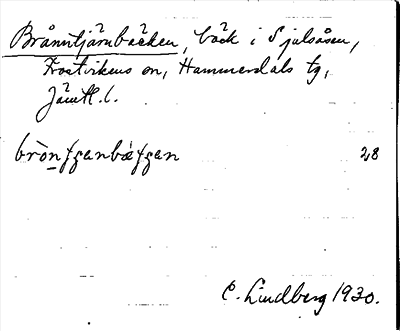 Brånntjärnbäcken, bäck i Sjulsåsen,
Frostvikens sn, Hammerdals tg,
Jämtl. l.
bròn̲ʃʒanbǽʃʒan 28
C. Lindberg 1930.